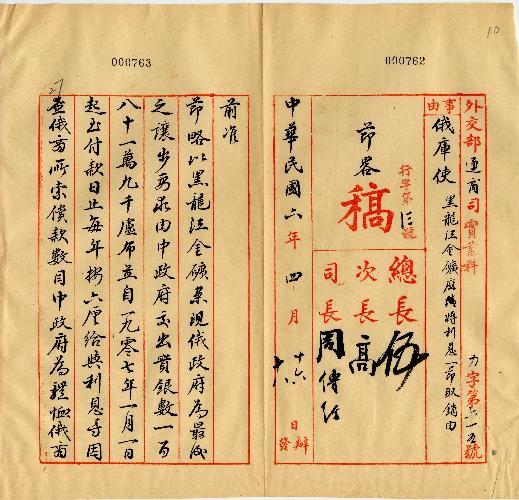 000763
000762
外交部通商司實業科
力字第二一五號
事由
俄庫使 黑龍江金礦廠 將利息一節取銷由
節略
稿
行字第 號
總長 伍
次長 高
司長 周傳經
中華民國六年四月十六日辦
十八 發
前准
節略以黑龍江金礦案現俄政府為最後
之讓步要求由中政府交出實銀數一百
八十一萬九千盧布並自一九零七年一月一日
起至付款日止每年按六厘給與利息等因
查俄商所索償款數目中政府為體恤俄商